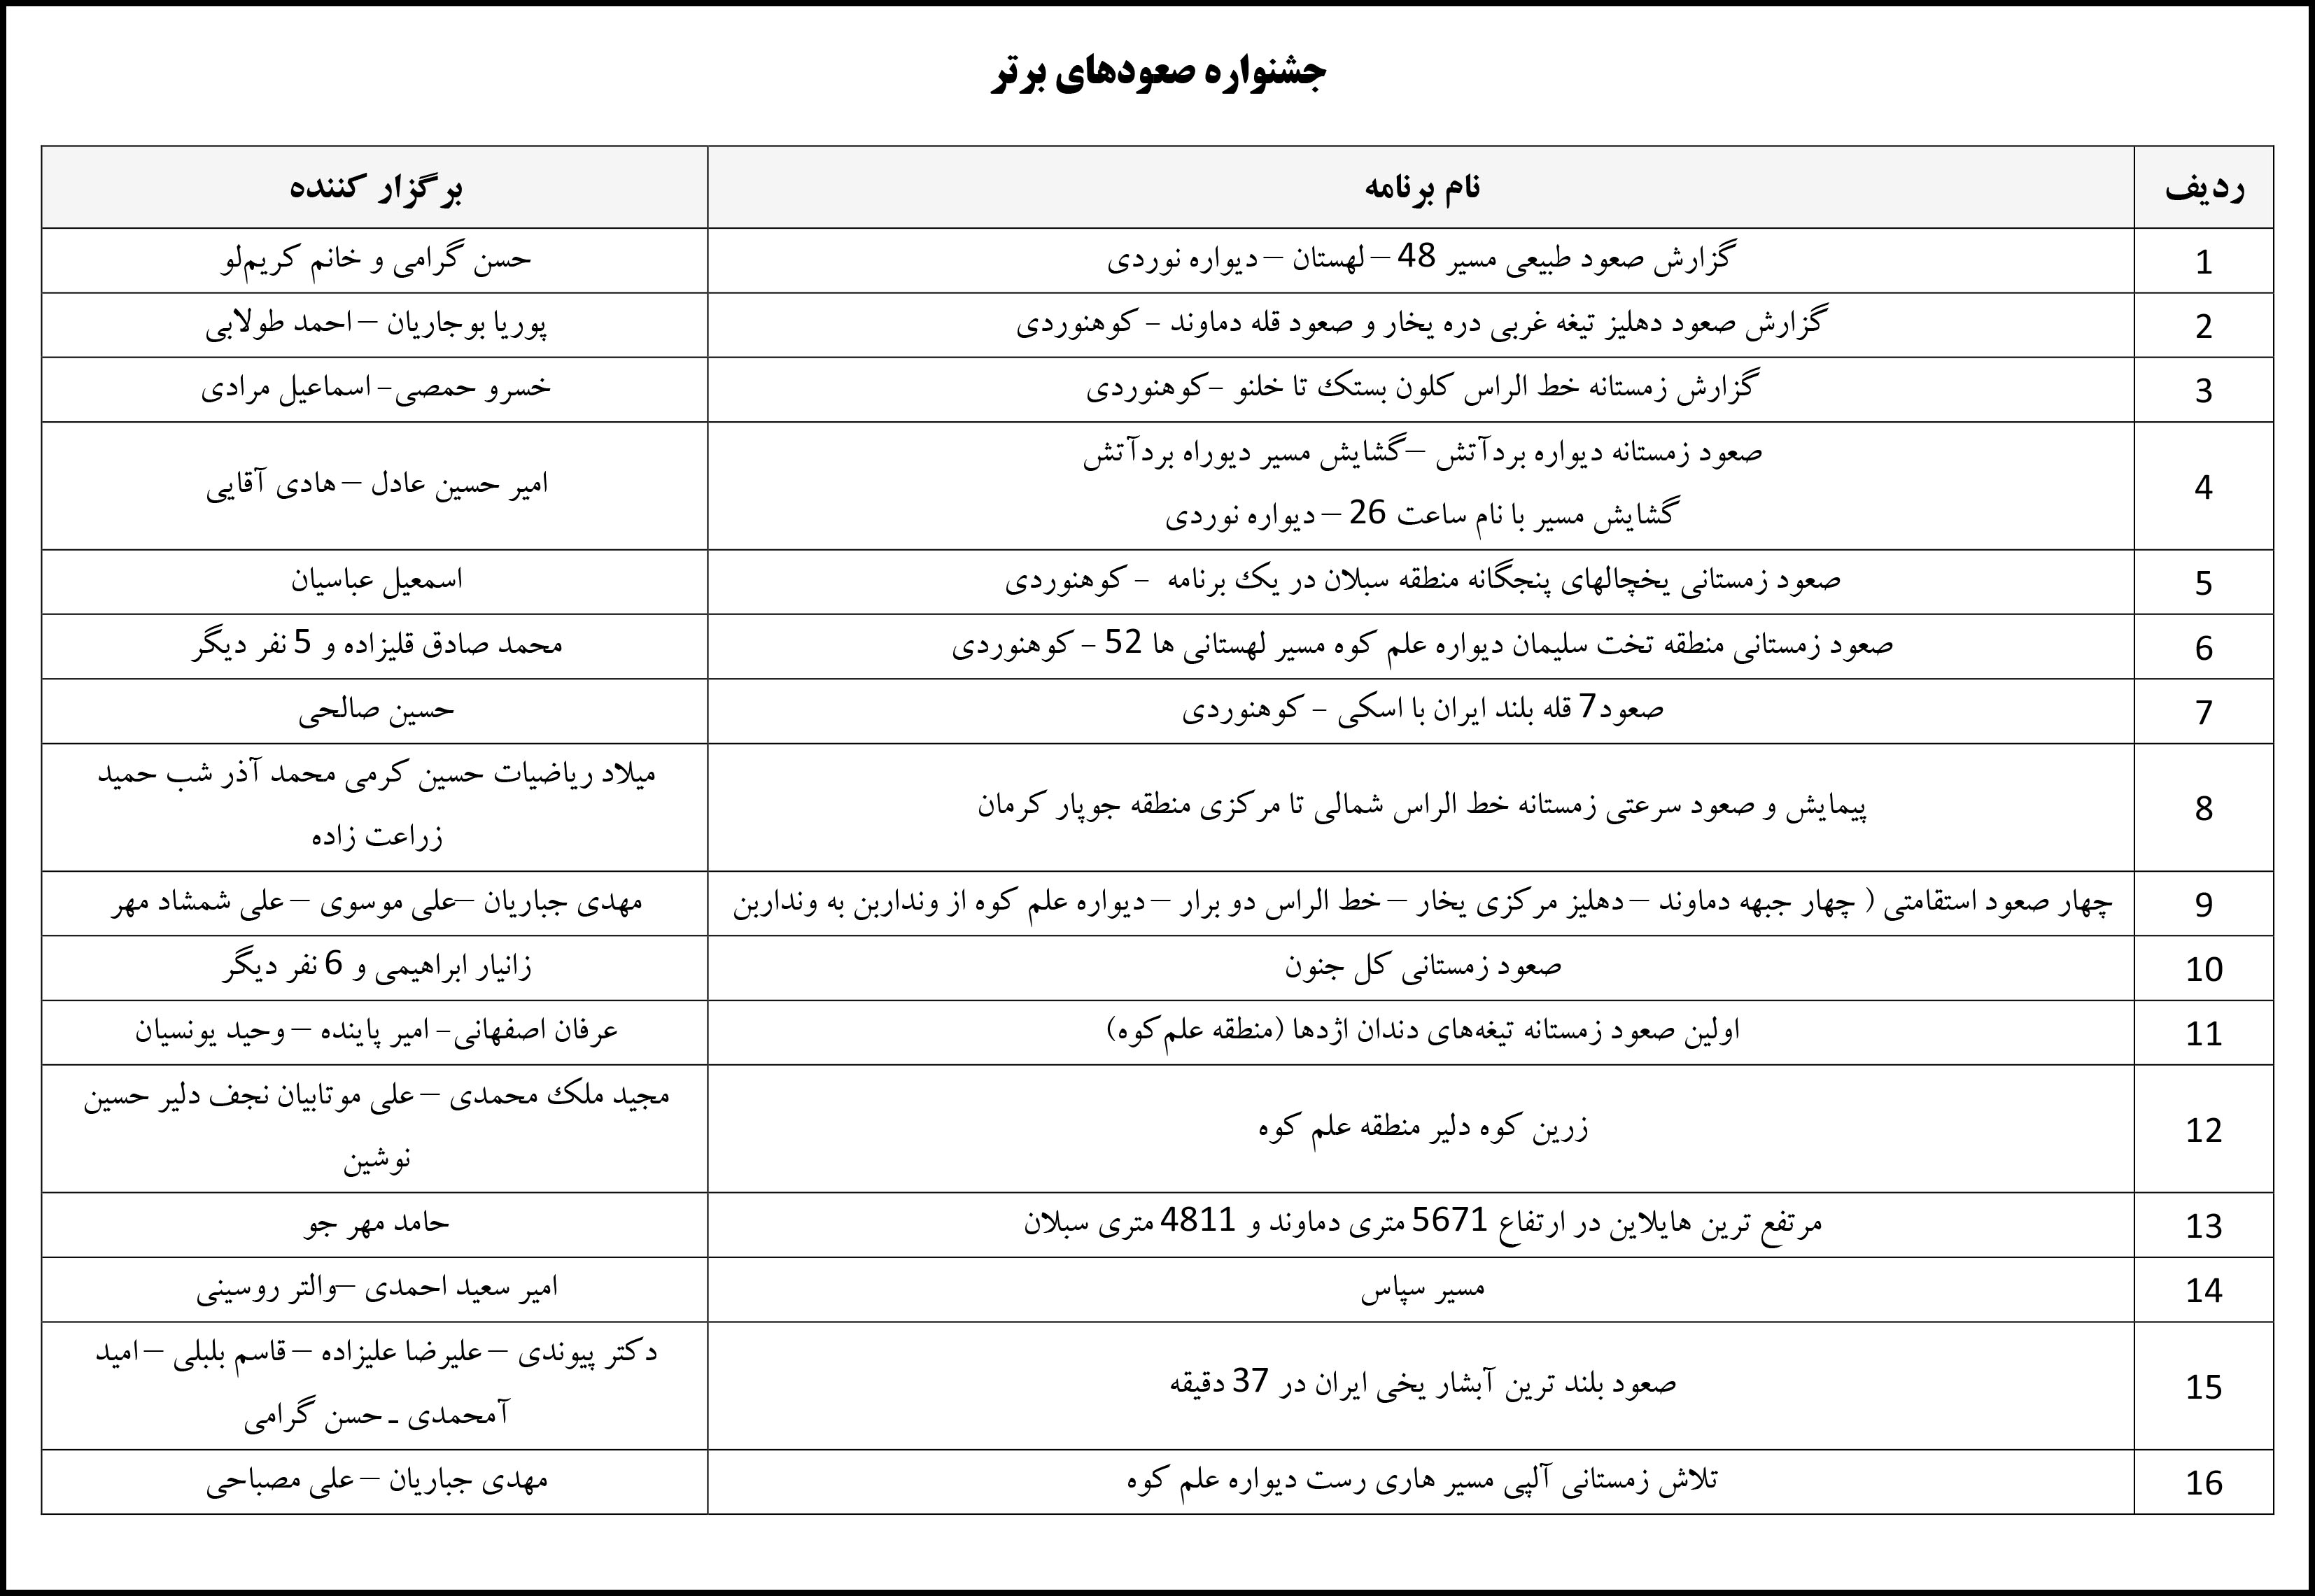 جشنواره صعودهای برتر
ردیف نام برنامه برگزار کننده
1 گزارش صعود طبیعی مسیر 48 – لهستان – دیواره نوردی حسن گرامی و خانم کریم‌لو
2 گزارش صعود دهلیز تیغه غربی دره یخار و صعود قله دماوند - کوهنوردی پوریا بوجاریان – احمد طولابی
3 گزارش زمستانه خط الراس کلون بستک تا خلنو -کوهنوردی خسرو حمصی- اسماعیل مرادی
4 صعود زمستانه دیواره بردآتش –گشایش مسیر دیوراه بردآتش
گشایش مسیر با نام ساعت 26 – دیواره نوردی امیر حسین عادل – هادی آقایی
5 صعود زمستانی یخچالهای پنجگانه منطقه سبلان در یک برنامه - کوهنوردی اسمعیل عباسیان
6 صعود زمستانی منطقه تخت سلیمان دیواره علم کوه مسیر لهستانی ها 52 - کوهنوردی محمد صادق قلیزاده و 5 نفر دیگر
7 صعود7 قله بلند ایران با اسکی - کوهنوردی حسین صالحی
8 پیمایش و صعود سرعتی زمستانه خط الراس شمالی تا مرکزی منطقه جوپار کرمان میلاد ریاضیات حسین کرمی محمد آذر شب حمید
زراعت زاده
9 چهار صعود استقامتی ( چهار جبهه دماوند – دهلیز مرکزی یخار – خط الراس دو برار – دیواره علم کوه از ونداربن به ونداربن مهدی جباریان –علی موسوی – علی شمشاد مهر
10 صعود زمستانی کل جنون زانیار ابراهیمی و 6 نفر دیگر
11 اولین صعود زمستانه تیغه‌های دندان اژدها (منطقه علم‌کوه) عرفان اصفهانی- امیر پاینده – وحید یونسیان
12 زرین کوه دلیر منطقه علم کوه مجید ملک محمدی – علی موتابیان نجف دلیر حسین
نوشین
13 مرتفع ترین هایلاین در ارتفاع 5671 متری دماوند و 4811 متری سبلان حامد مهر جو
14 مسیر سپاس امیر سعید احمدی –والتر روسینی
15 صعود بلند ترین آبشار یخی ایران در 37 دقیقه دکتر پیوندی – علیرضا علیزاده – قاسم بلبلی – امید
آمحمدی ـ حسن گرامی
16 تلاش زمستانی آلپی مسیر هاری رست دیواره علم کوه مهدی جباریان – علی مصباحی